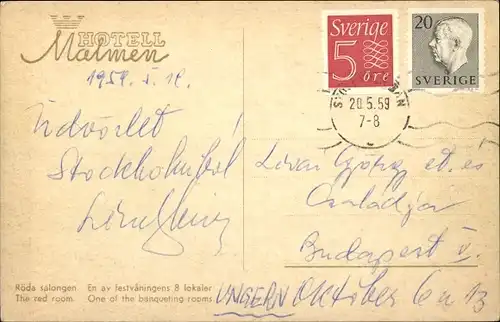 HOTELL
Malmen
Sverige
5
öre
20
SVERIGE
20.5.59
7-8
Üdvözlet
Stockholmból
György és
Családja
Budapest V.
UNGERN Október 6 u 13
Röda salongen En av festvåningens 8 lokaler
The red room. One of the banqueting rooms